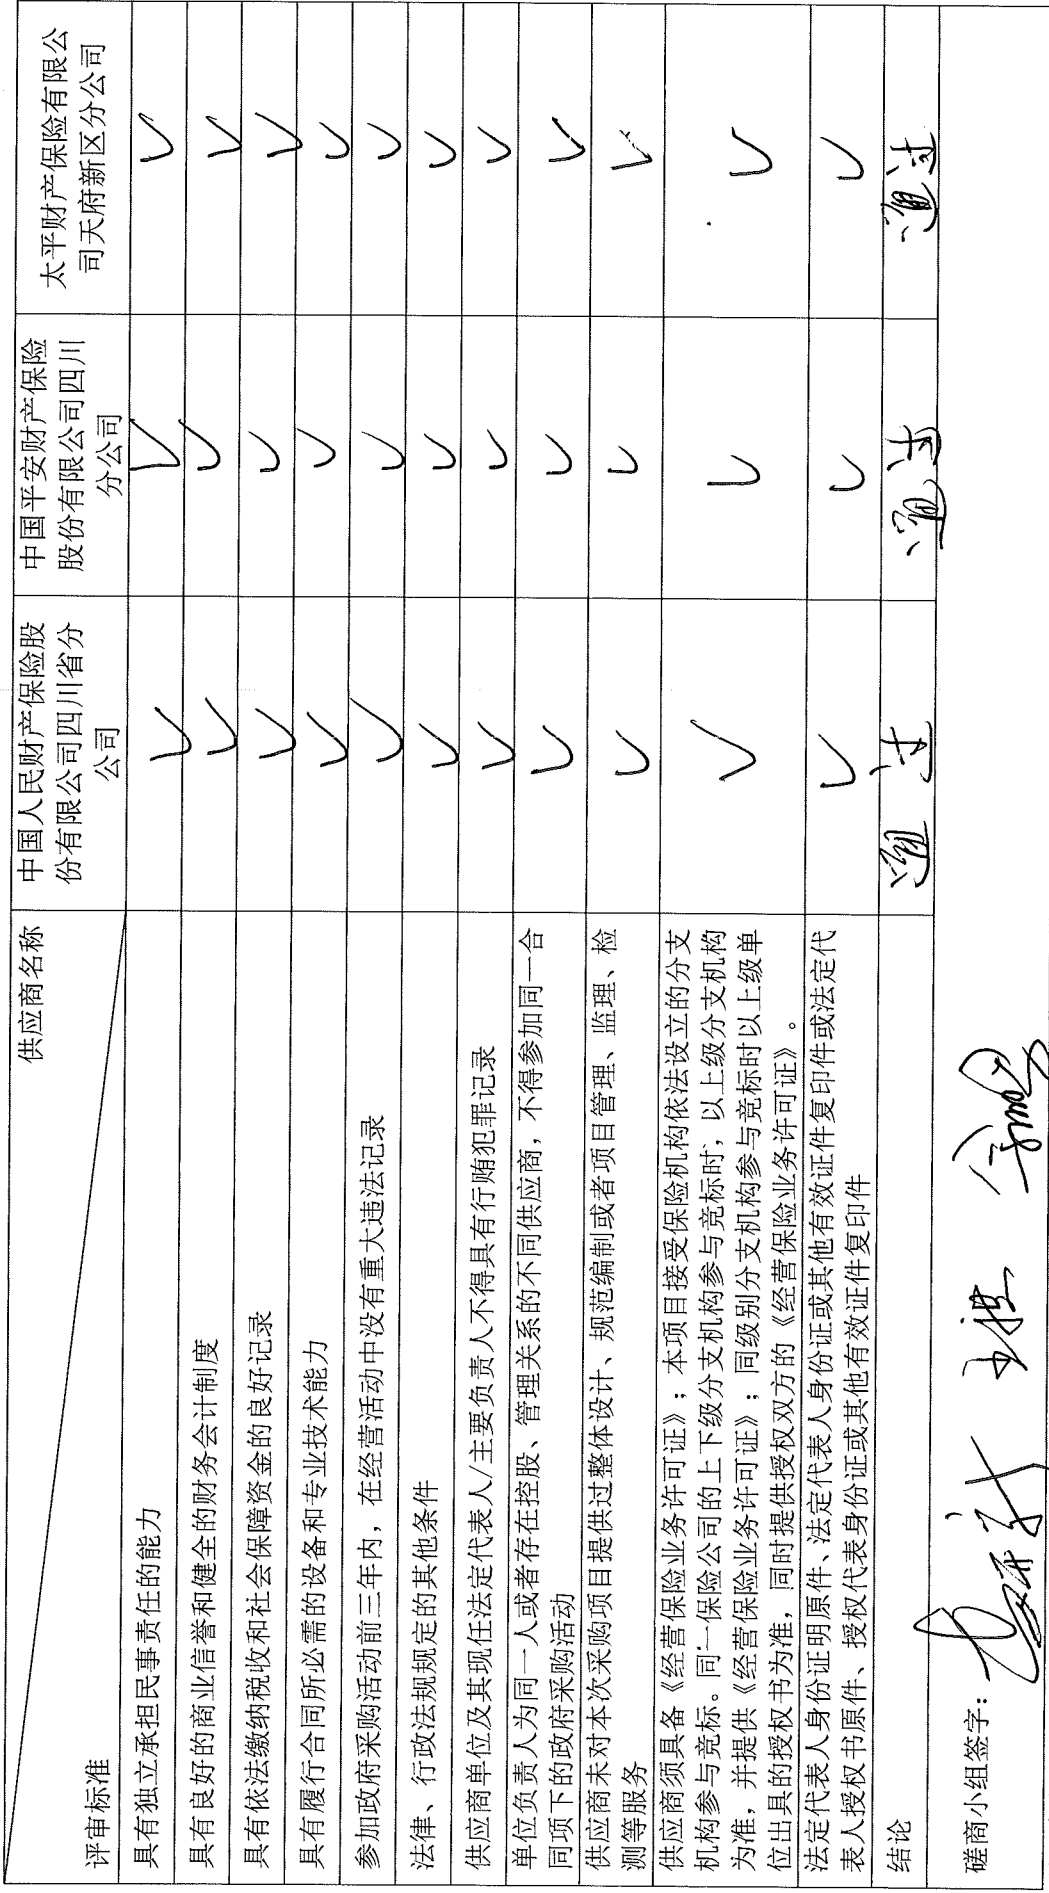 供应商名称
评审标准
中国人民财产保险股
份有限公司四川省分
公司
中国平安财产保险
股份有限公司四川
分公司
太平财产保险有限公
司天府新区分公司
具有独立承担民事责任的能力 ✓ ✓ ✓
具有良好的商业信誉和健全的财务会计制度 ✓ ✓ ✓
具有依法缴纳税收和社会保障资金的良好记录 ✓ ✓ ✓
具有履行合同所必需的设备和专业技术能力 ✓ ✓ ✓
参加政府采购活动前三年内，在经营活动中没有重大违法记录 ✓ ✓ ✓
法律、行政法规规定的其他条件 ✓ ✓ ✓
供应商单位及其现任法定代表人/主要负责人不得具有行贿犯罪记录 ✓ ✓ ✓
单位负责人为同一人或者存在控股、管理关系的不同供应商，不得参加同一合
同项下的政府采购活动 ✓ ✓ ✓
供应商未对本次采购项目提供过整体设计、规范编制或者项目管理、监理、检
测等服务 ✓ ✓ ✓
供应商须具备《经营保险业务许可证》；本项目接受保险机构依法设立的分支
机构参与竞标。同一保险公司的上下级分支机构参与竞标时，以上级分支机构
为准，并提供《经营保险业务许可证》；同级别分支机构参与竞标时以上级单
位出具的授权书为准，同时提供授权双方的《经营保险业务许可证》。 ✓ ✓ ✓
法定代表人身份证明原件、法定代表人身份证或其他有效证件复印件或法定代
表人授权书原件、授权代表身份证或其他有效证件复印件 ✓ ✓ ✓
结论 通过 通过 通过
磋商小组签字：